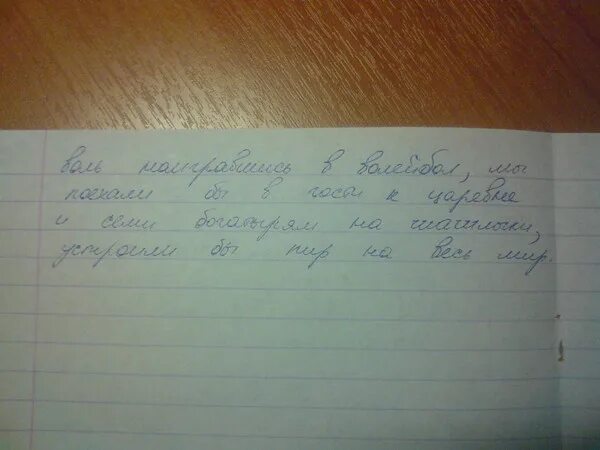 воль наигравшись в волейбол, мы
поехали бы в гости к царевне
и семи богатырям на шашлыки,
устроили бы пир на весь мир.